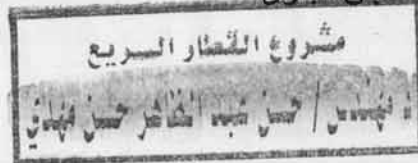 مشروع القطار السريع
مهندس / حسن عبد الظاهر حسن مهدي